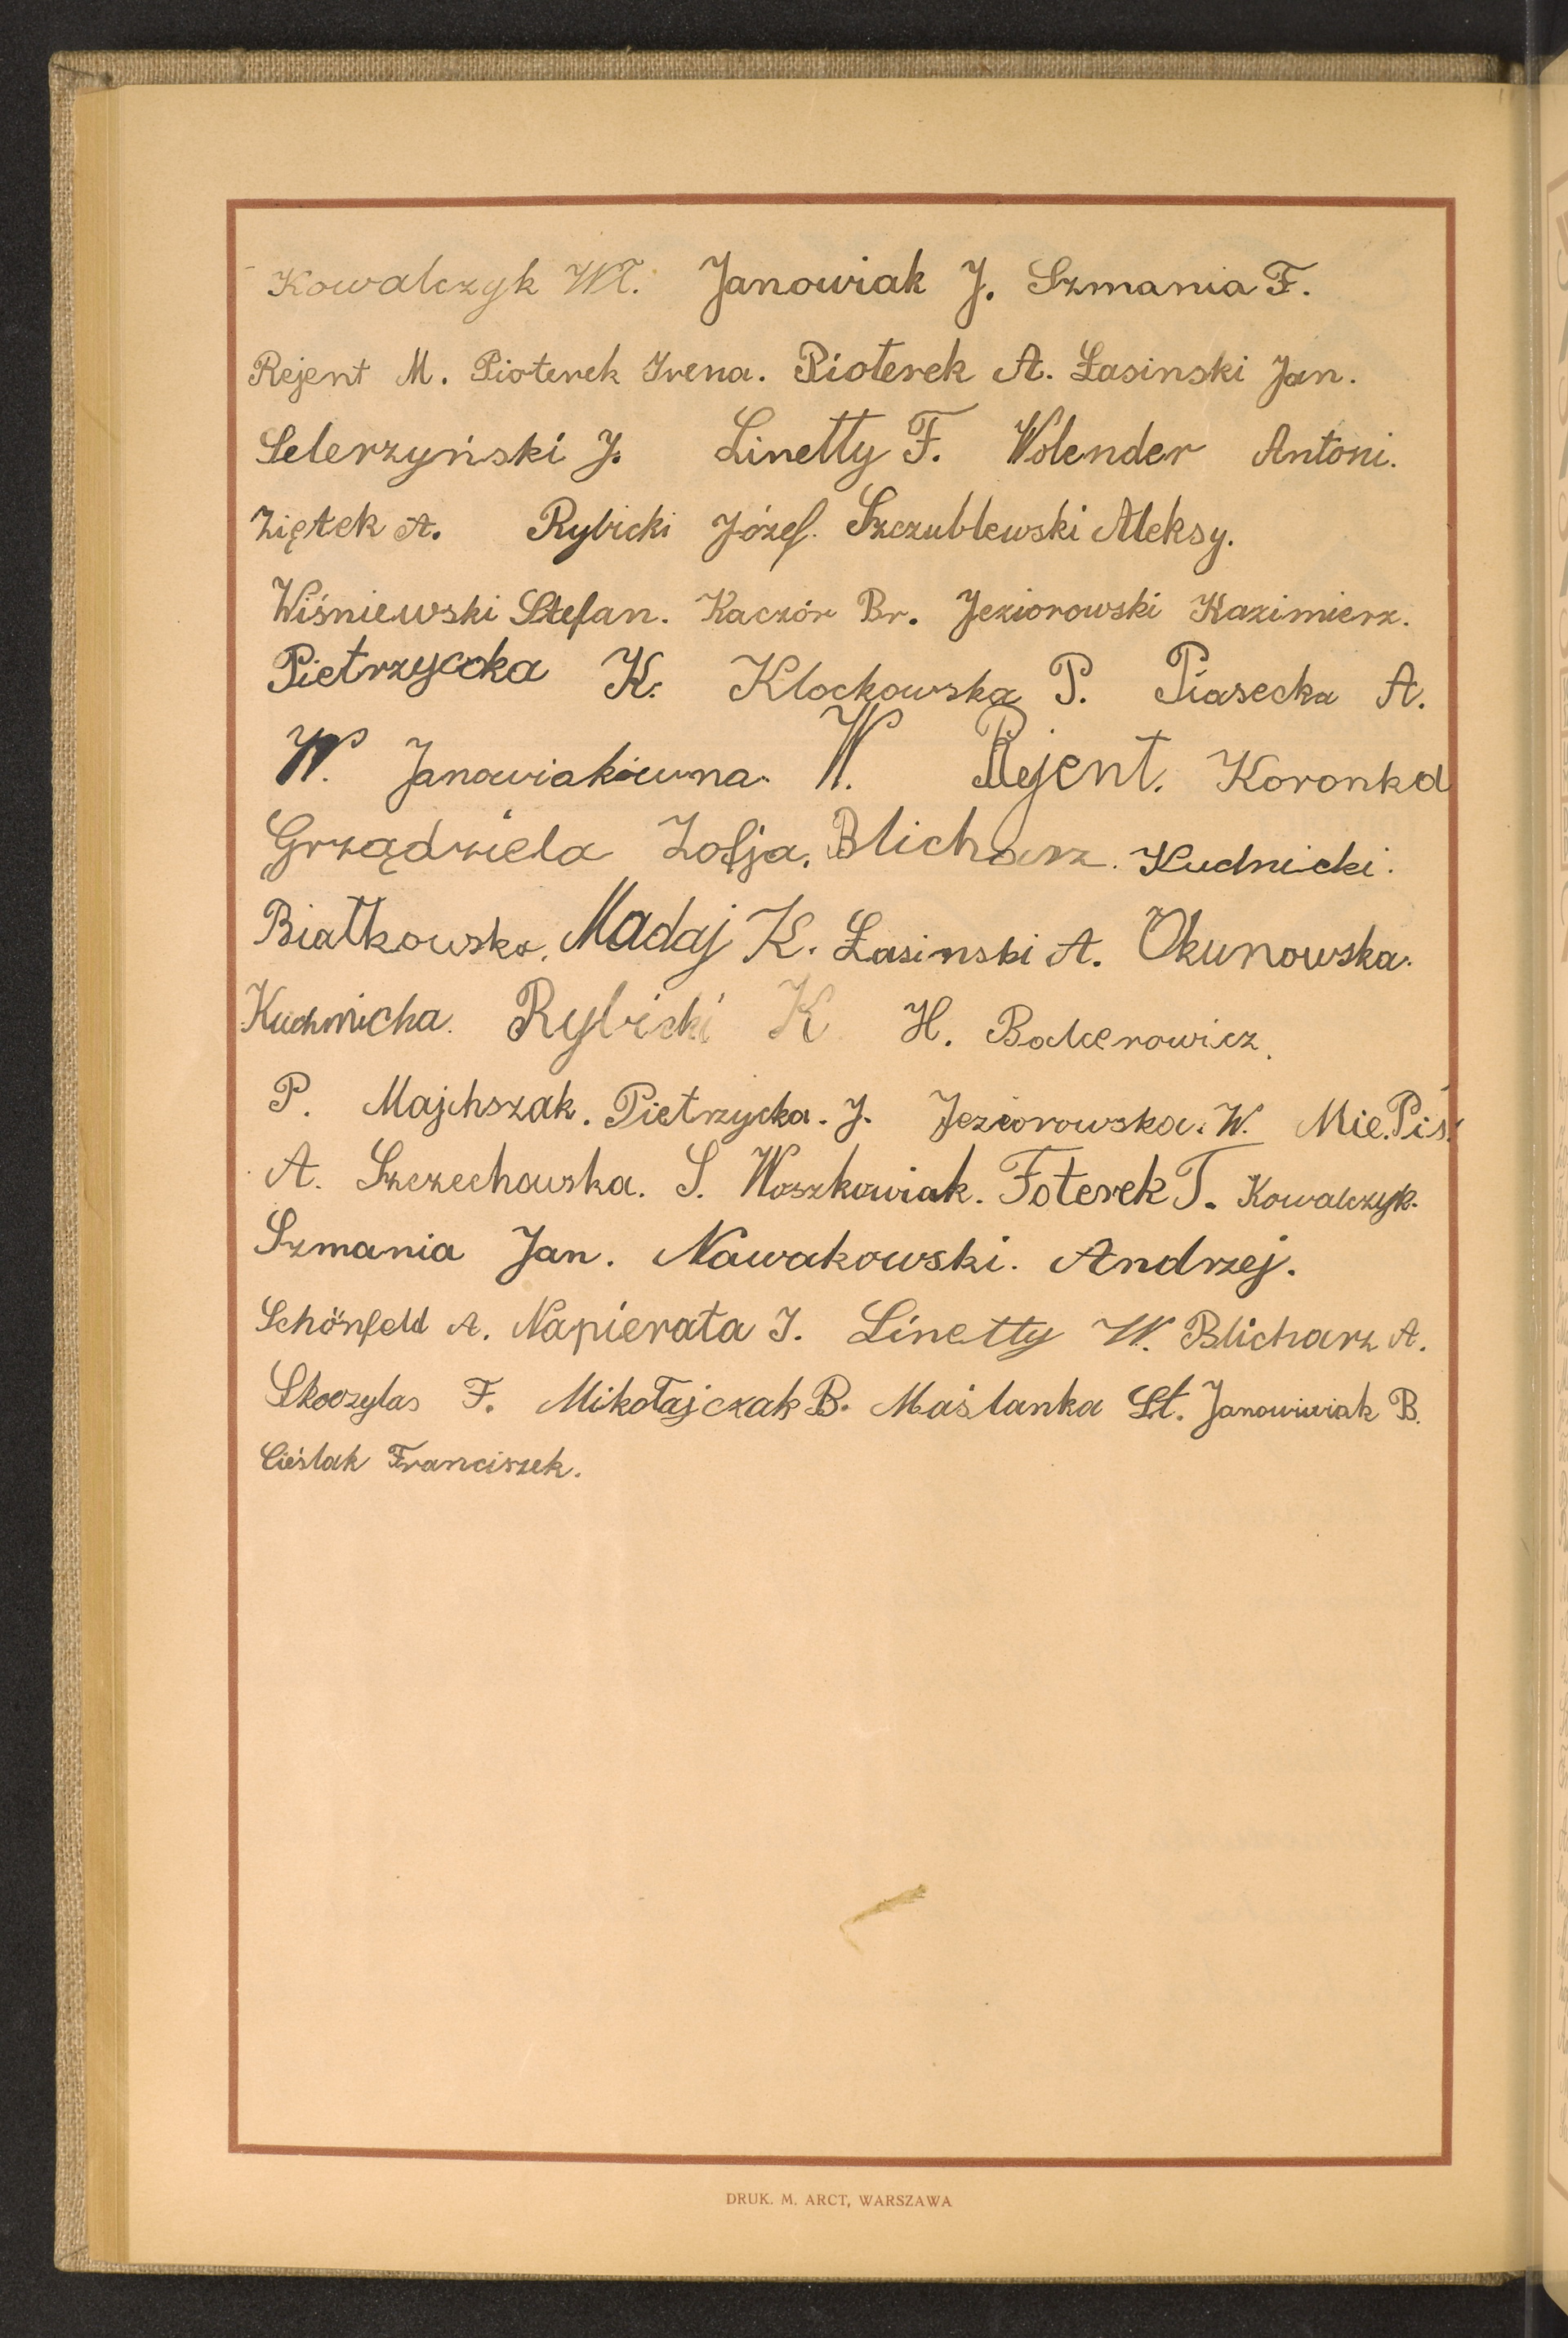 Kowalczyk Wł. Janowiak J. Szmania F.
Rejent M. Pioterek Irena. Pioterek A. Łasinski Jan.
Selerzyński J. Linetty F. Wolender Antoni.
Ziętek A. Rybicki Józef. Szczublewski Aleksy.
Wiśniewski Stefan. Kaczór Br. Jeziorowski Kazimierz.
Pietrzycka K. Klockowska P. Piasecka A.
W. Janowiakówna. W. Rejent. Koronka
Grządziela Zofja. Blicharz. Kudnicki.
Białkowska. Madaj K. Łasinski A. Okunowska.
Rybicki K H.
P. Majchszak. Pietrzycka. J. Jeziorowska. W. Mie. Piś.
A. Szczechowska. S. Woszkowiak. Foterek T. Kowalczyk.
Szmania Jan. Nawakowski. Andrzej.
Schönfeld A. Napierała I. Linetty W. Blicharz A.
Skoczylas F. Mikołajczak B. Maślanka St. Janowiwiak B.
Cieślak Franciszek.
DRUK. M. ARCT, WARSZAWA